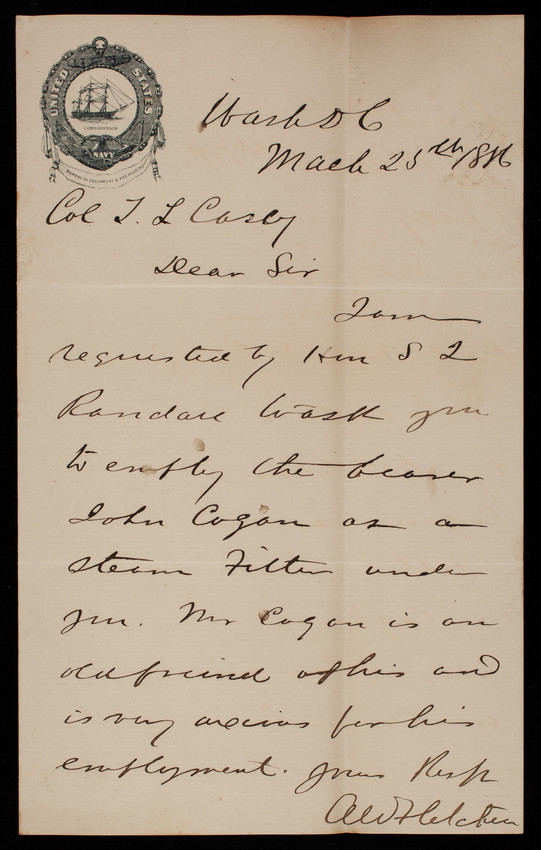 UNITED STATES
CONSTITUTION
NAVY
BUREAU OF EQUIPMENT & RECRUITING
Wash D C
Mach 25th 1886
Col T. L Casey
Dear Sir
I am
requested by Hon S J
Randall to ask you
to employ the bearer
John Cogan as a
steam Fitter under
you. Mr Cogan is an
old friend of his and
is very anxious for his
employment. Yours Resp
A W Fletcher